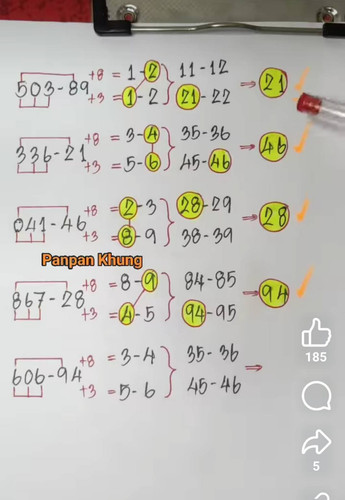 +8 = 1-2 } 11-12
503-89 → 21
+3 = 1-2 21-22
+8 = 3-4 } 35-36
336-21 → 46
+3 = 5-6 45-46
+8 = 2-3 } 28-29
041-46 → 28
+3 = 8-9 38-39
Panpan Khung
+8 = 8-9 } 84-85
867-28 → 94
+3 = 4-5 94-95
+8 = 3-4 } 35-36
606-94 →
+3 = 5-6 45-46
185
5